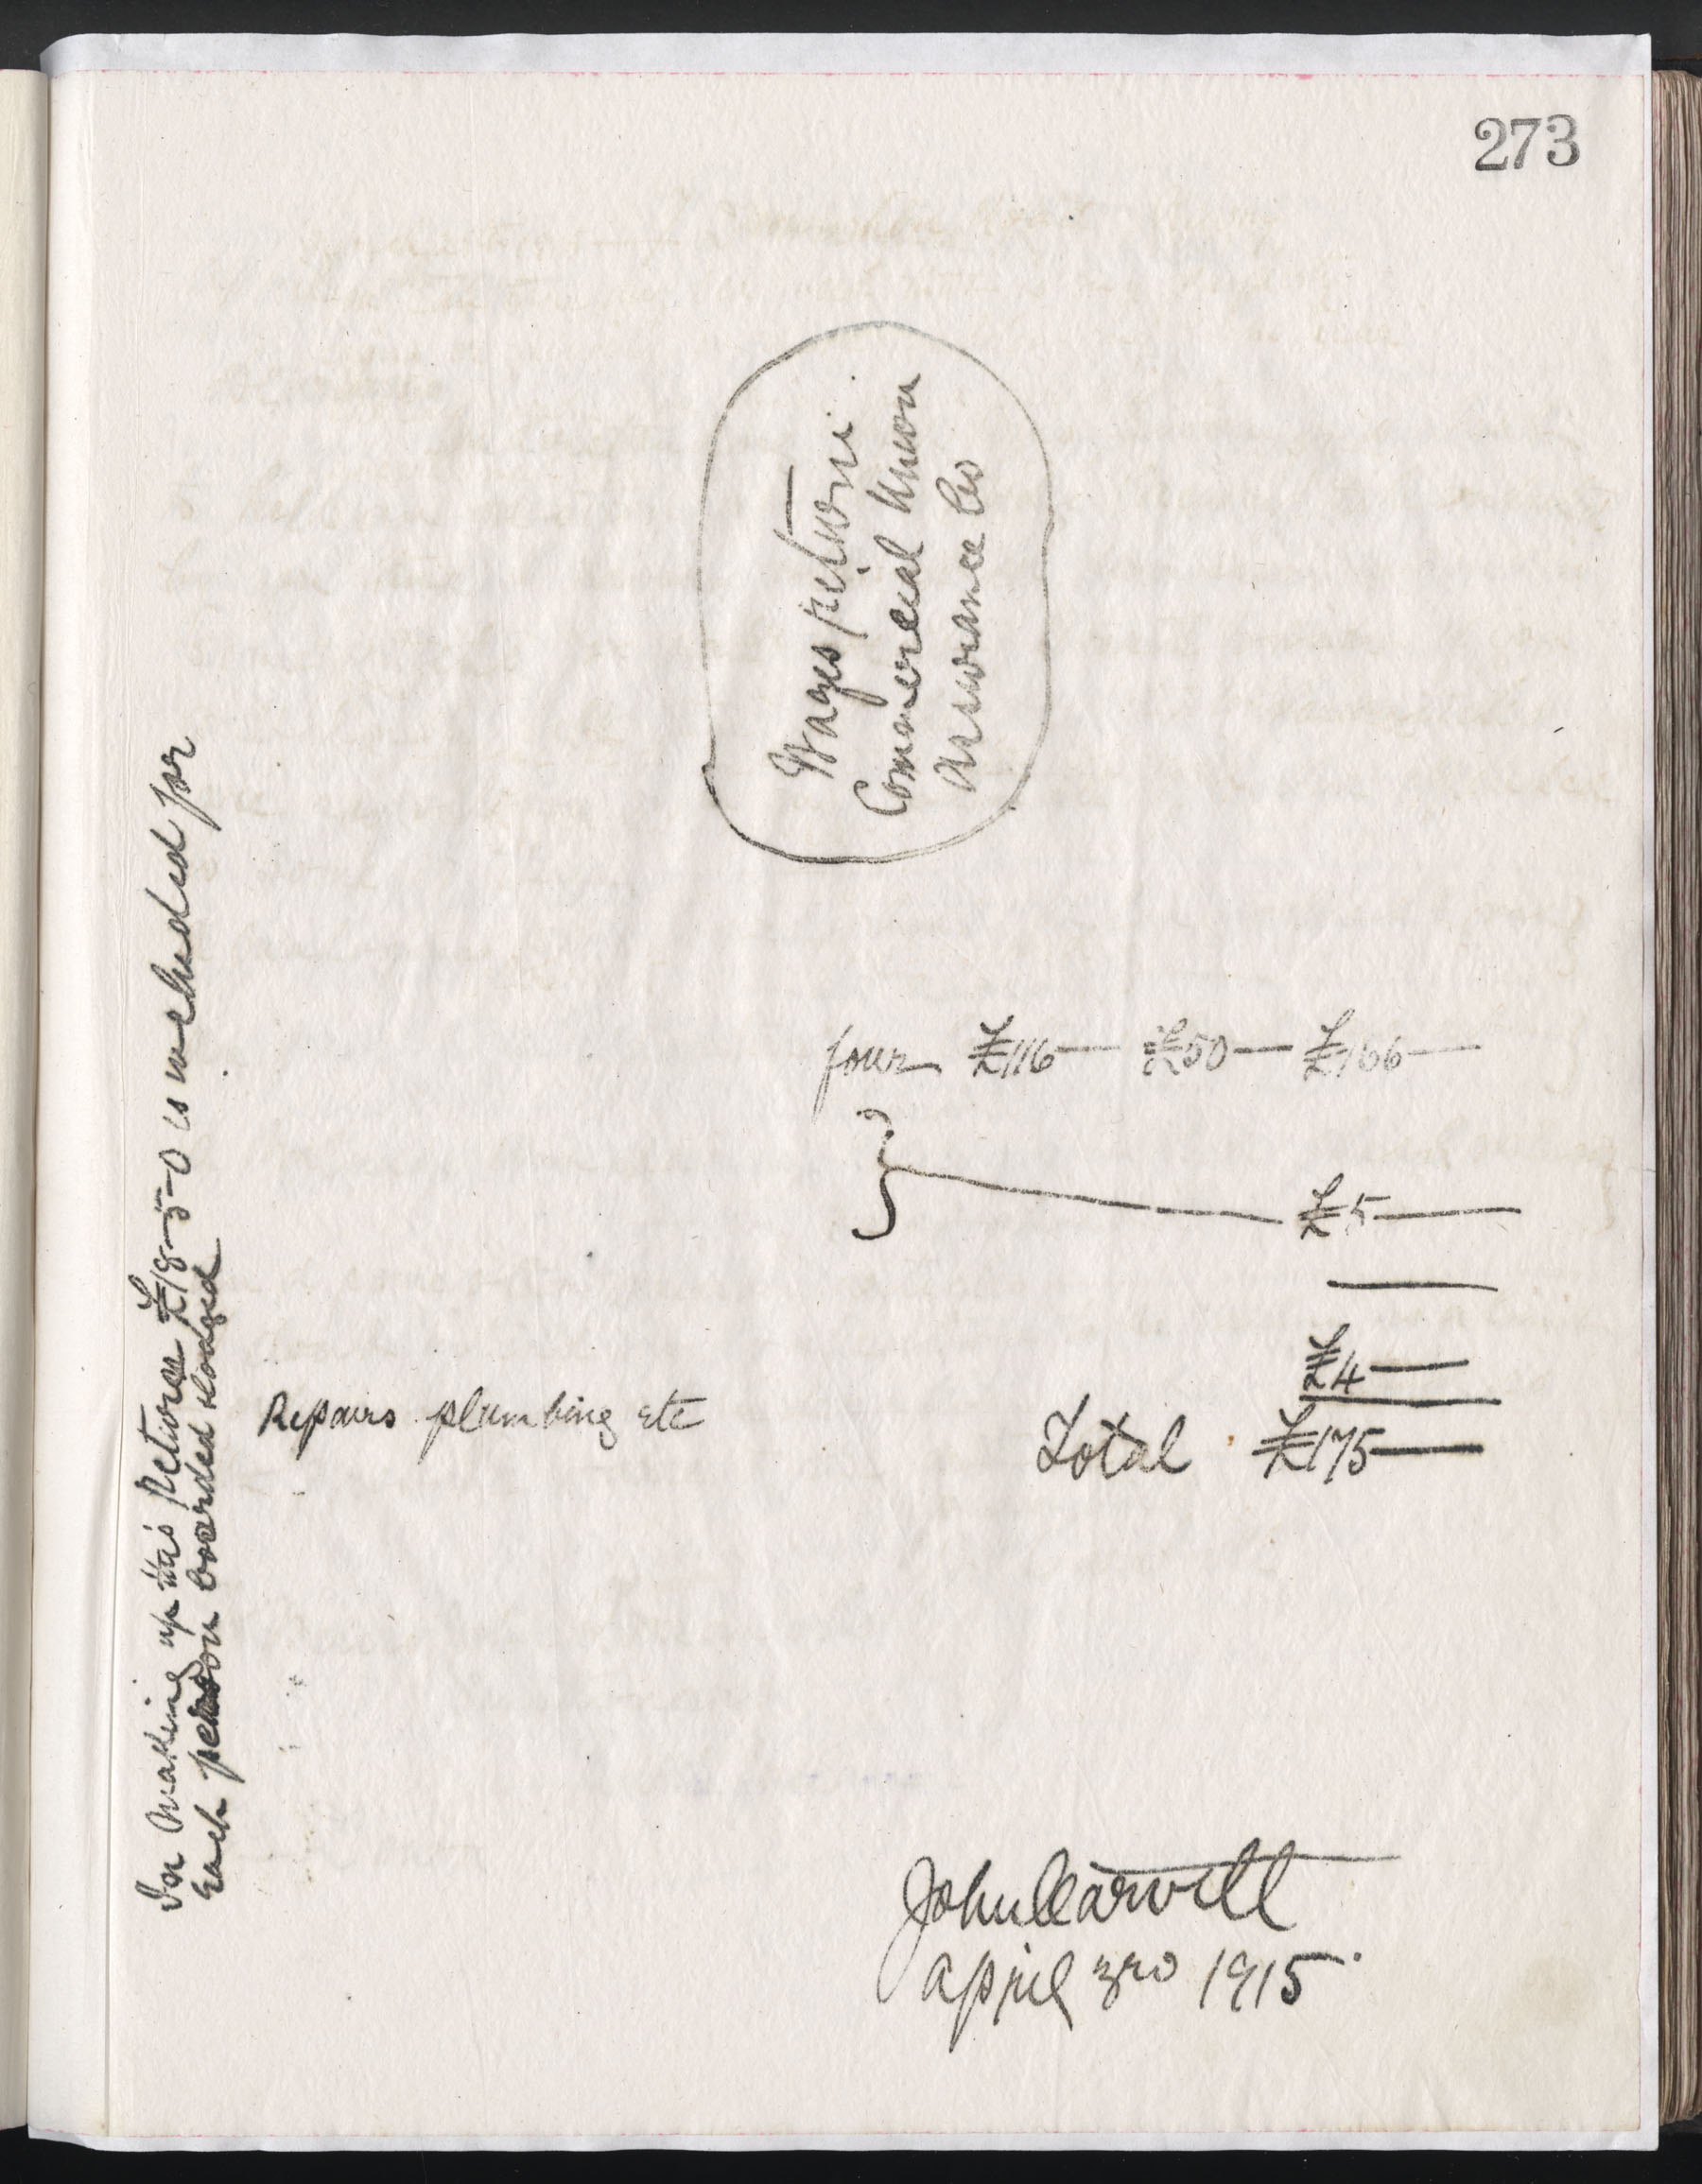 273
Wages return
Commercial Union
Assurance Co
In making up this return £18-5-0 is included for
Each person boarded & lodged
four £116— £50— £166—
£5—
£4—
Repairs plumbing etc
Total £175—
John
April 3rd 1915